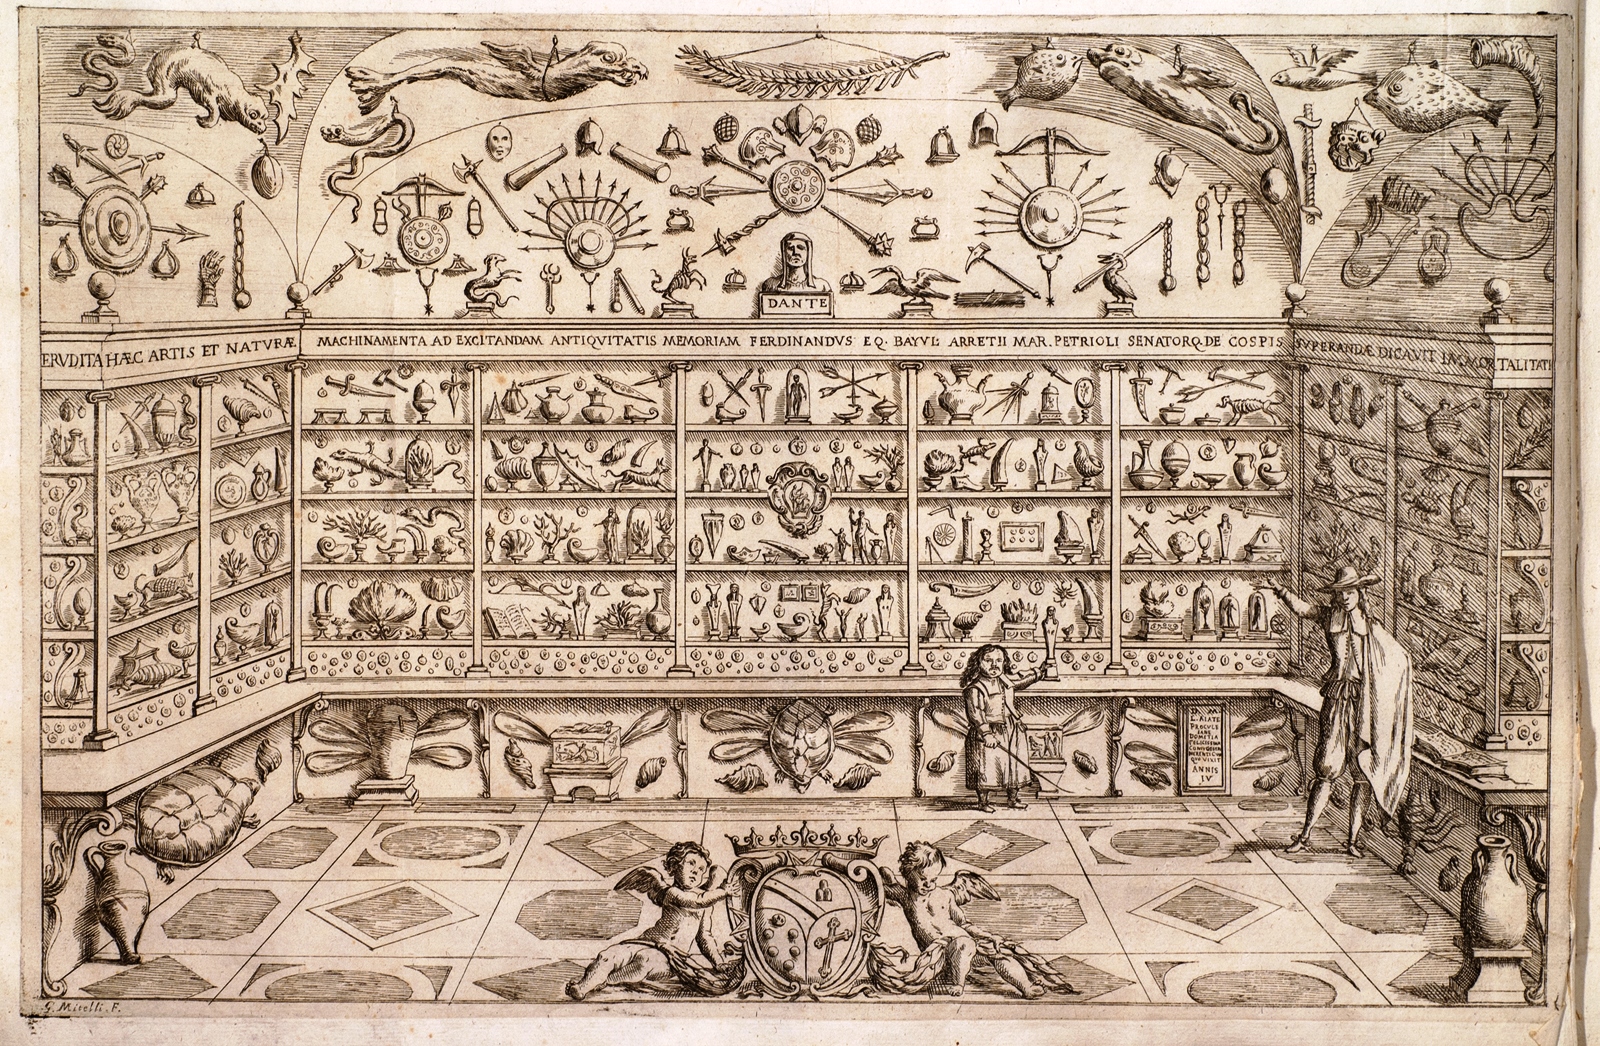 DANTE
ERVDITA HÆC ARTIS ET NATVRÆ MACHINAMENTA AD EXCITANDAM ANTIQVITATIS MEMORIAM FERDINANDVS EQ. BAYVL. ARRETII MAR. PETRIOLI SENATORQ.DE COSPIS SVPERANDÆ DICAVIT IMMORTALITATI
D. M.
L. AIATE
ANNIS
IV
G. Mitelli. F.